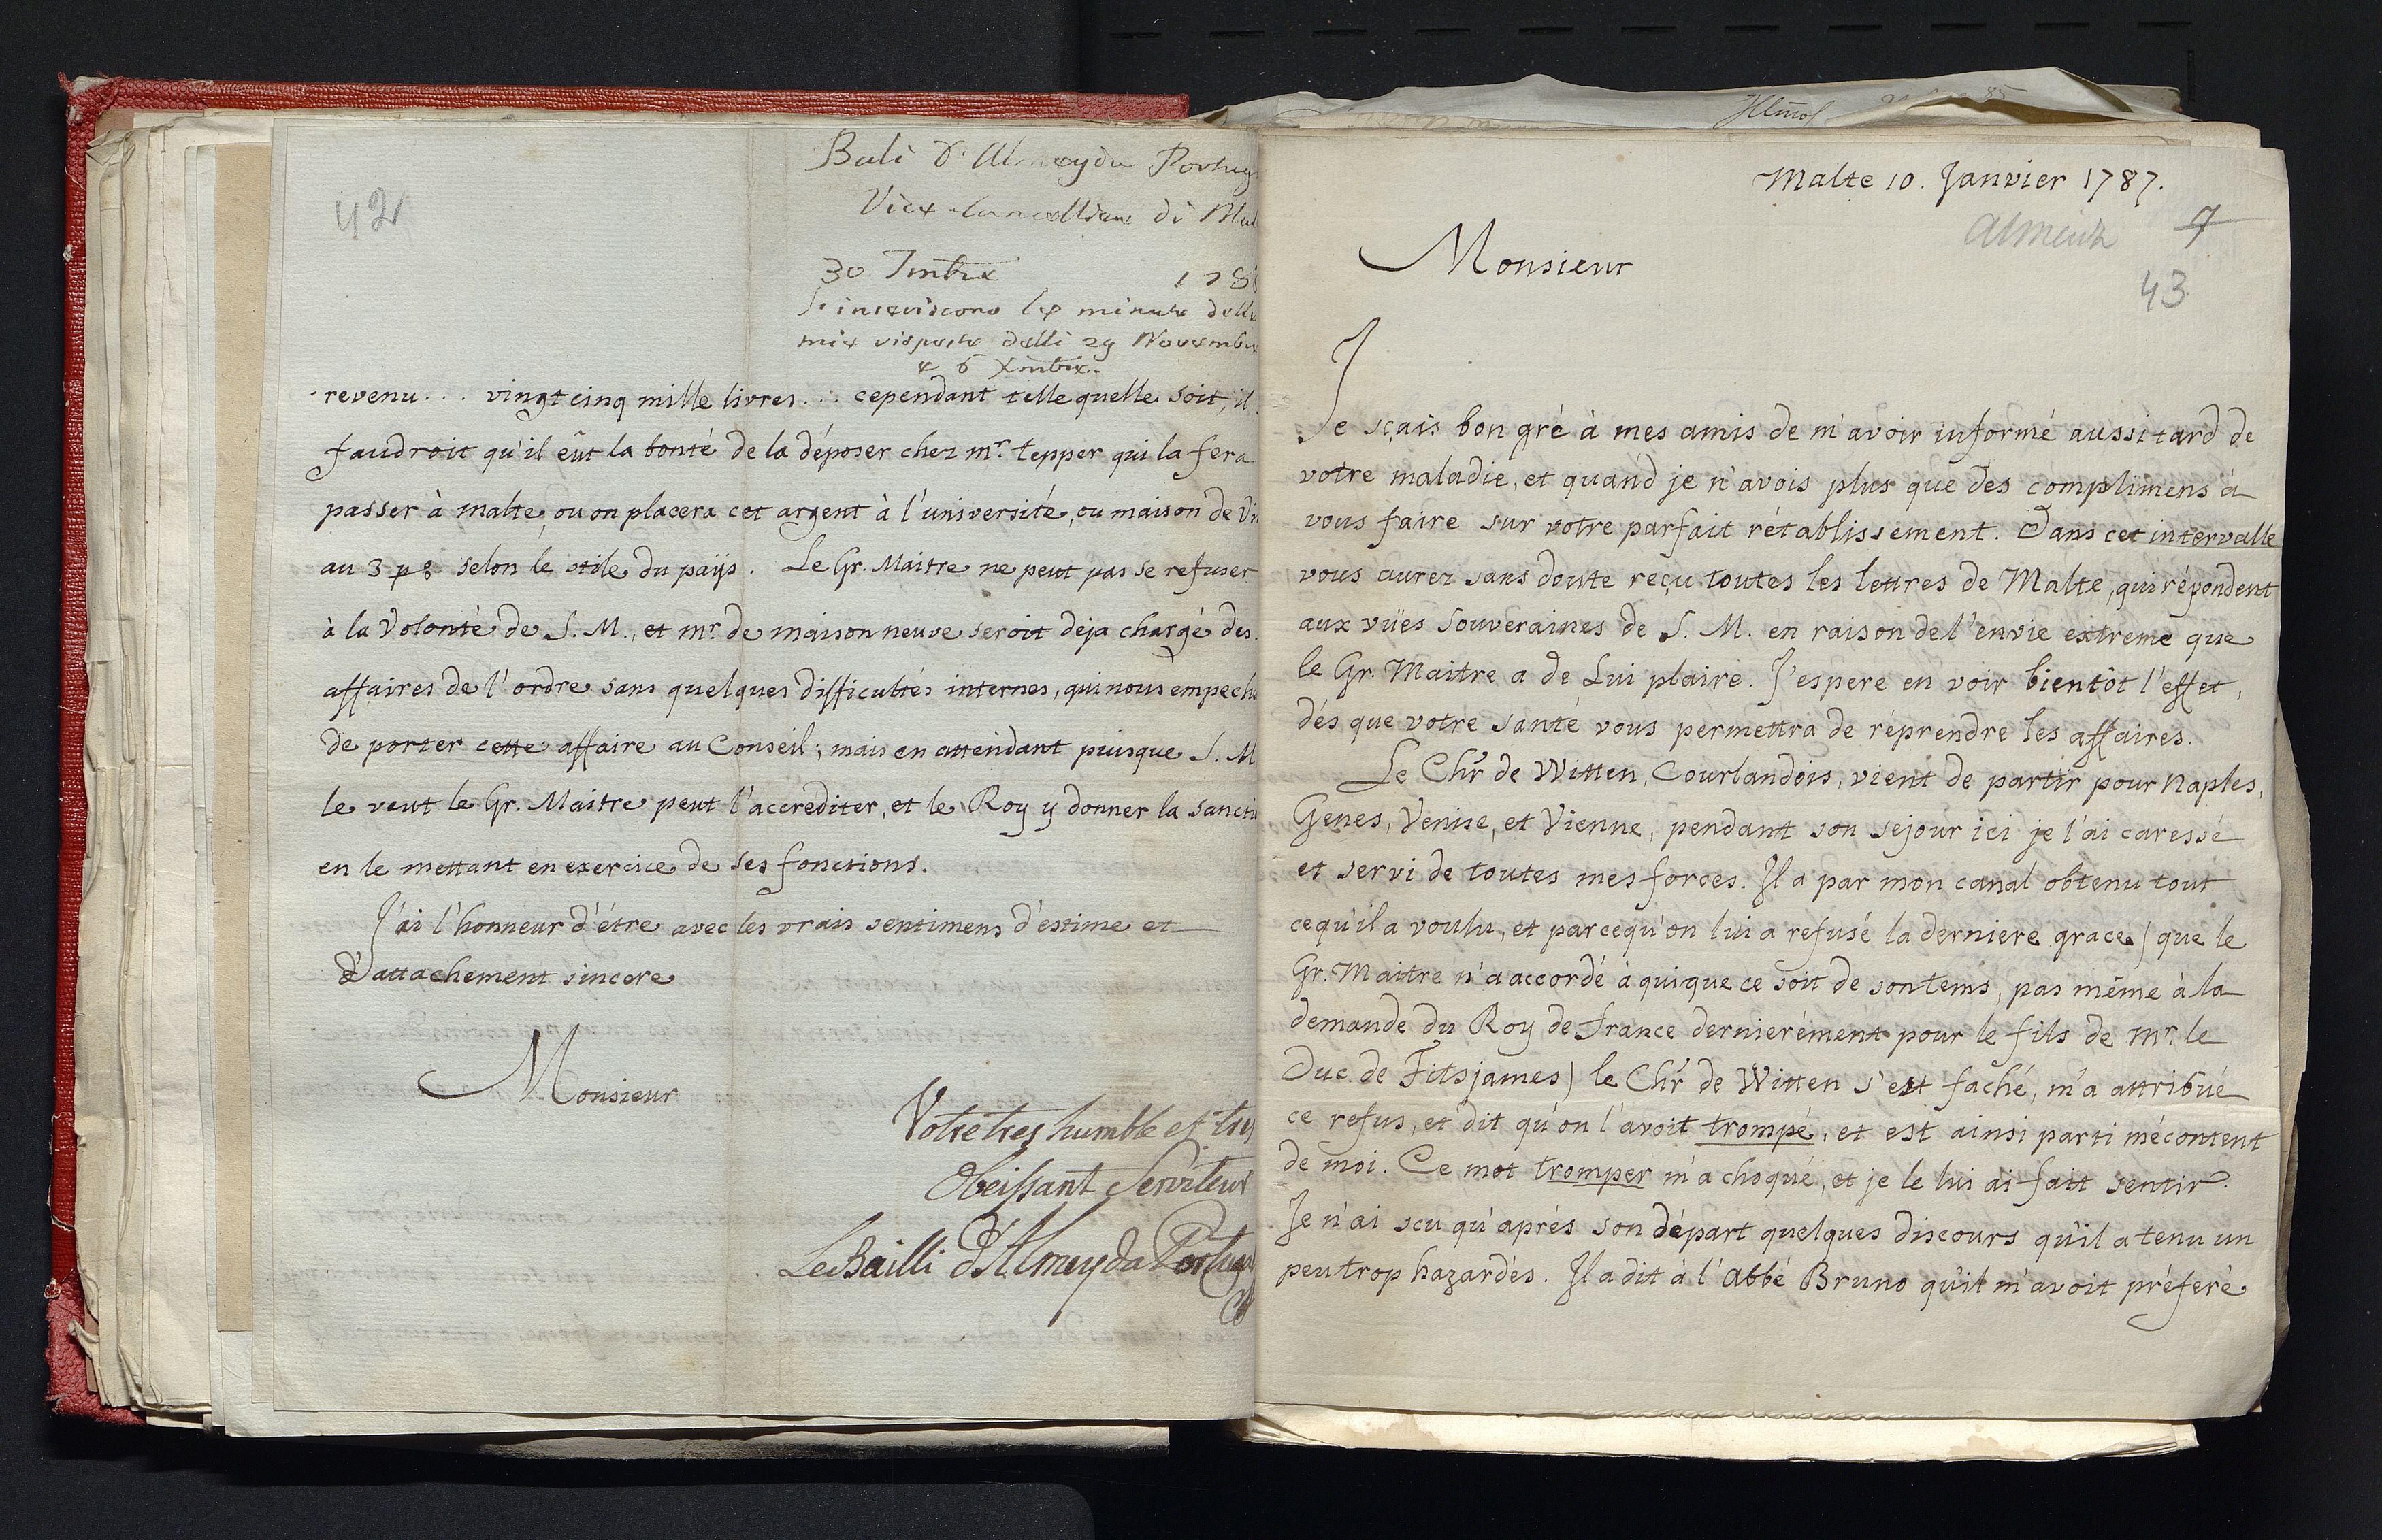 42
Bali d'Almeyda Portug
Vice-Cancelliere di Mal
30 7mbre 178
S'inseriscono le minute delle
mie risposte delli 29 Novembre
e 6 Xmbre.
revenu... vingt cinq mille livres... cependant telle quelle soit, il
faudroit qu'il eût la bonté de la déposer chez mr. tepper qui la fera
passer à malte, ou on placera cet argent à l'université, ou maison de vi
au 3 p % selon le stile du païs. Le Gr. Maitre ne peut pas se refuser
à la Volonté de S. M., et mr. de maisonneuve seroit deja chargé des
affaires de l'ordre sans quelques difficultés internes, qui nous empeche
de porter cette affaire au Conseil; mais en attendant puisque S. M
le veut le Gr. Maitre peut l'accréditer, et le Roy y donner la sanctio
en le mettant en exercice de ses fonctions.
J'ai l'honneur d'étre avec les vrais sentimens d'estime et
d'attachement sincere
Monsieur
Votre tres humble et tres
Obeissant Serviteur
Le Bailli d'Almeyda Portuga
Malte 10. Janvier 1787.
Almeida 7
43
Monsieur
Je sçais bon gré à mes amis de m'avoir informé aussi tard de
votre maladie, et quand je n'avois plus que des complimens à
vous faire sur votre parfait rétablissement. Dans cet intervalle
vous aurez sans doute reçu toutes les lettres de Malte, qui répondent
aux vües Souveraines de S. M. en raison de l'envie extreme que
le Gr. Maitre a de Lui plaire. J'espere en voir bientôt l'effet,
dés que votre santé vous permettra de réprendre les affaires.
Le Chr. de Witten, Courlandois, vient de partir pour Naples,
Genes, Venise, et Vienne, pendant son sejour ici je l'ai caressé
et servi de toutes mes forces. Il a par mon canal obtenu tout
cequ'il a voulu, et parcequ'on lui a refusé la derniere grace (que le
Gr. Maitre n'a accordé à quique ce soit de son tems, pas même à la
demande du Roy de france dernierément pour le fils de mr. le
Duc de Fitsjames) le Chr. de Witten s'est faché, m'a attribué
ce refus, et dit qu'on l'avoit trompé, et est ainsi parti mécontent
de moi. Ce mot tromper m'a choqué, et je le lui ai fait sentir.
Je n'ai scu qu'aprés son départ quelques discours qu'il a tenu un
peu trop hazardés. Il a dit à l'Abbé Bruno qu'il m'avoit préferé